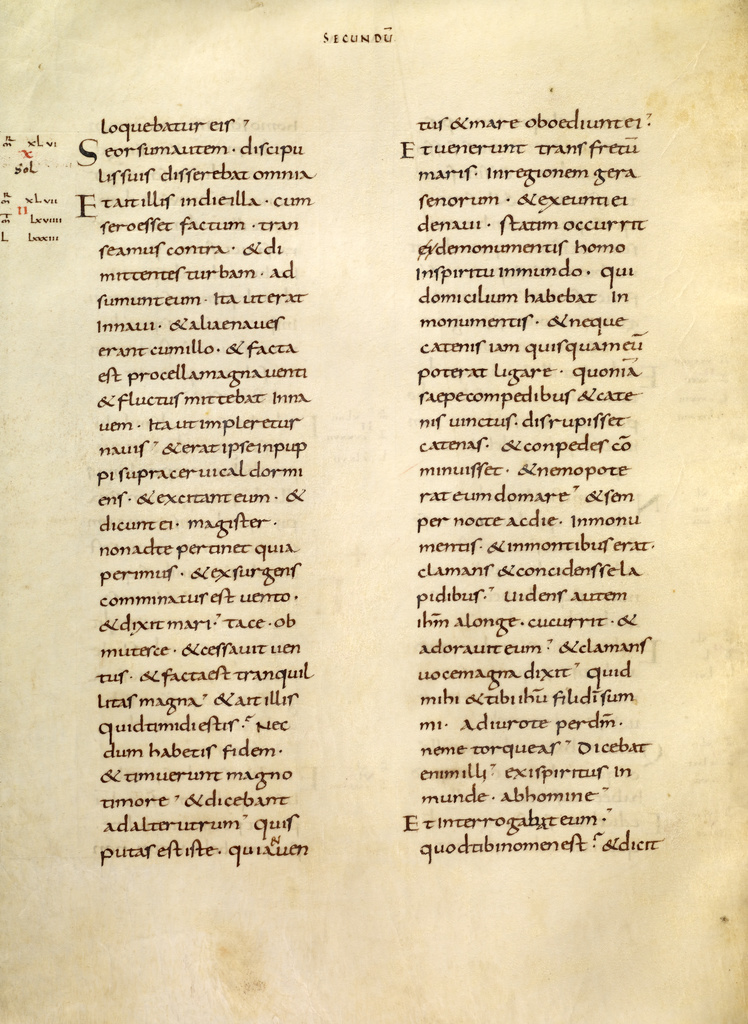 SECUNDŪ
m̄ xLvi
x
Sol
m̄ xLvii
II
m̄ Lxviiii
L Lxxxiii
loquebatur eis
Seorsum autem · discipu
lis suis disserebat omnia
Et ait illis in die illa · cum
sero esset factum · tran
seamus contra · & di
mittentes turbam · ad
sumunt eum · Ita ut erat
In naui · & aliae naues
erant cum illo · & facta
est procella magna uenti
& fluctus mittebat In na
uem · Ita ut impleretur
nauis & erat ipse in pup
pi supra ceruical dormi
ens · & excitant eum · &
dicunt ei · magister ·
non ad te pertinet quia
perimus · & exsurgens
comminatus est uento ·
& dixit mari · tace · ob
mutesce · & cessauit uen
tus · & facta est tranquil
litas magna & ait illis
quid timidi estis · Nec
dum habetis fidem ·
& timuerunt magno
timore & dicebant
ad alterutrum quis
putas est iste · quia N uen
tus & mare oboediunt ei ?
Et uenerunt trans fretū
maris · In regionem gera
senorum · & exeunti ei
de naui · statim occurrit
ei de monumentis homo
In spiritu inmundo · qui
domicilium habebat In
monumentis · & neque
catenis iam quisquam eū
poterat ligare · quoniā
saepe compedibus & cate
nis uinctus · disrupisset
catenas · & conpedes cō
minuisset · & nemo pote
rat eum domare & sem
per nocte ac die · In monu
mentis · & in montibus erat ·
clamans & concidens se la
pidibus · Uidens autem
ihm̄ a longe · cucurrit · &
adorauit eum & clamans
uoce magna dixit quid
mihi & tibi ihū fili dī sum
mi · Adiuro te per dm̄ ·
ne me torqueas Dicebat
enim illi exi spiritus In
munde · ab homine
Et Interrogabat eum ·
quod tibi nomen est ? & dicit